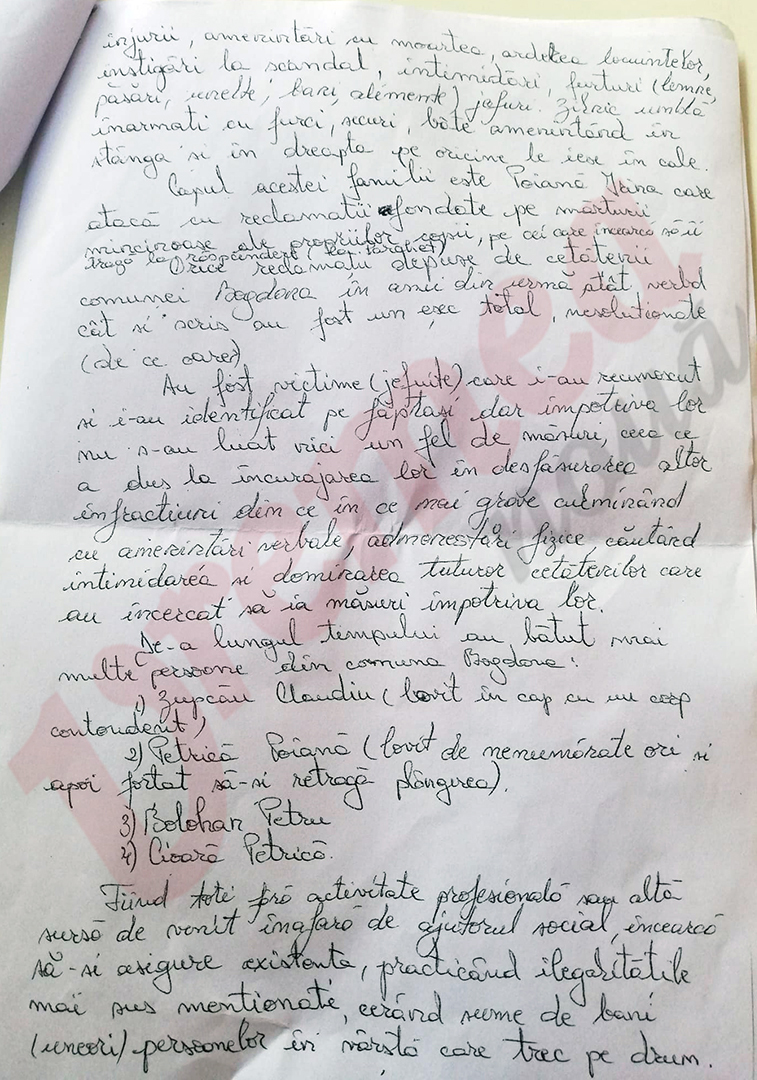 injurii, amenintări cu moartea, arderea locuintelor,
instigări la scandal, intimidări, furturi (lemne,
păsări, unelte; bani, alimente) jafuri. Zilnic umblă
înarmati cu furci, securi, bâte amenintând în
stânga si în dreapta pe oricine le iese în cale.
Capul acestei familii este Poiană Irina care
atacă cu reclamatii afondate pe mărturii
mincinoase ale propriilor copii, pe cei care încearcă să îi
tragă la răspundere (la parghet)
Orice reclamatii depuse de cetătenii
comunei Bogdana în anii din urmă atât verbal
cât si scris au fost un esec total, nesolutionate
(de ce oare?)
Au fost victime (jefuite) care i-au recunoscut
si i-au identificat pe făptasi dar împotriva lor
nu s-au luat nici un fel de măsuri, ceea ce
a dus la încurajarea lor în desfăsurarea altor
infractiuni din ce în ce mai grave culminând
cu amenintări verbale, admonestări fizice căutând
intimidarea si dominarea tuturor cetătenilor care
au încercat să ia măsuri împotriva lor.
De-a lungul timpului au bătut mai
multe persoane din comuna Bogdana:
1) Zupcău Claudiu (lovit în cap cu un corp
contondent)
2) Petrică Poiană (lovit de nenumărate ori si
apoi fortat să-si retragă plângerea).
3) Bolohan Petru
4) Cioară Petrică.
Fiind toti fără activitate profesională sau altă
sursă de venit înafară de ajutorul social, încearcă
să-si asigure existenta, practicând ilegalitătile
mai sus mentionate, cerând sume de bani
(uneori) persoanelor în vârstă care trec pe drum.
Vremea
nouă